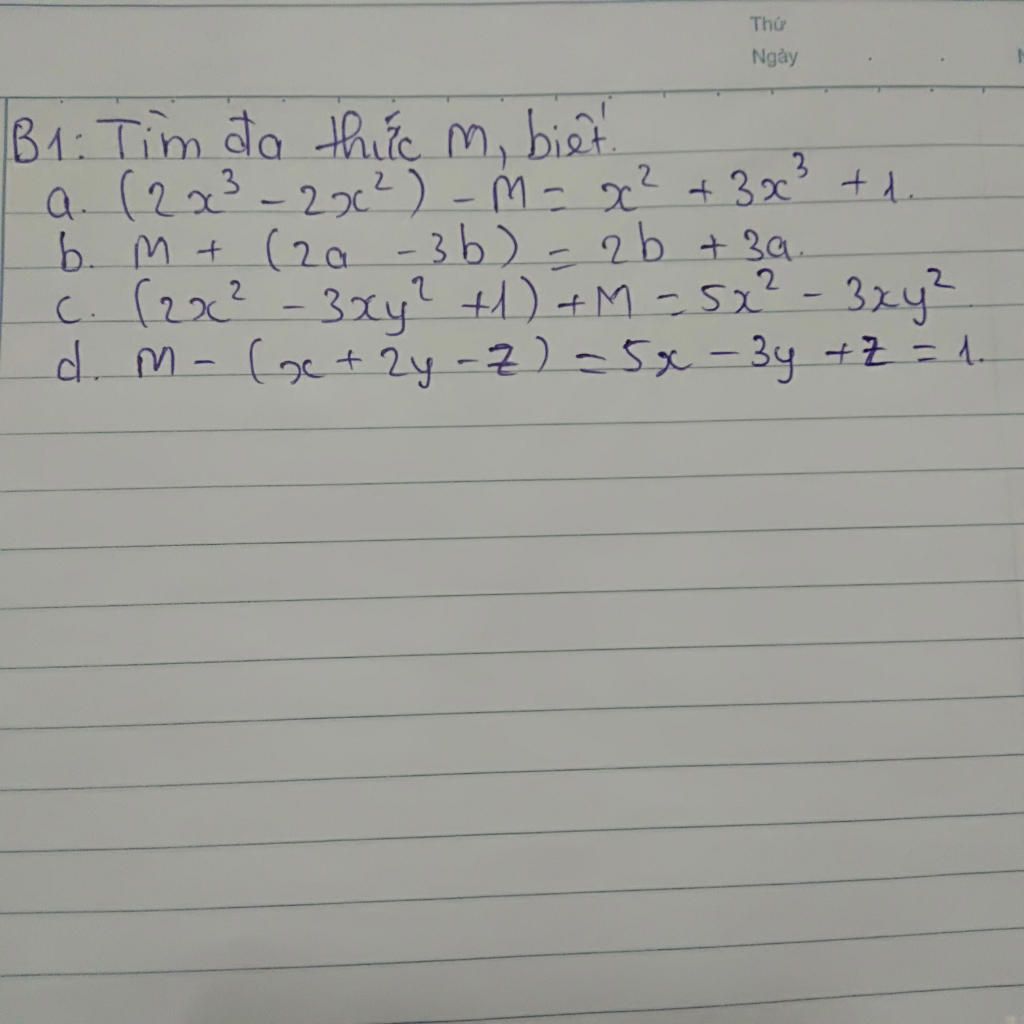 Thứ
Ngày
B1: Tìm đa thức M, biết.
a. (2x³ - 2x²) - M = x² + 3x³ + 1.
b. M + (2a - 3b) = 2b + 3a.
c. (2x² - 3xy² + 1) + M = 5x² - 3xy²
d. M - (x + 2y - z) = 5x - 3y + z = 1.